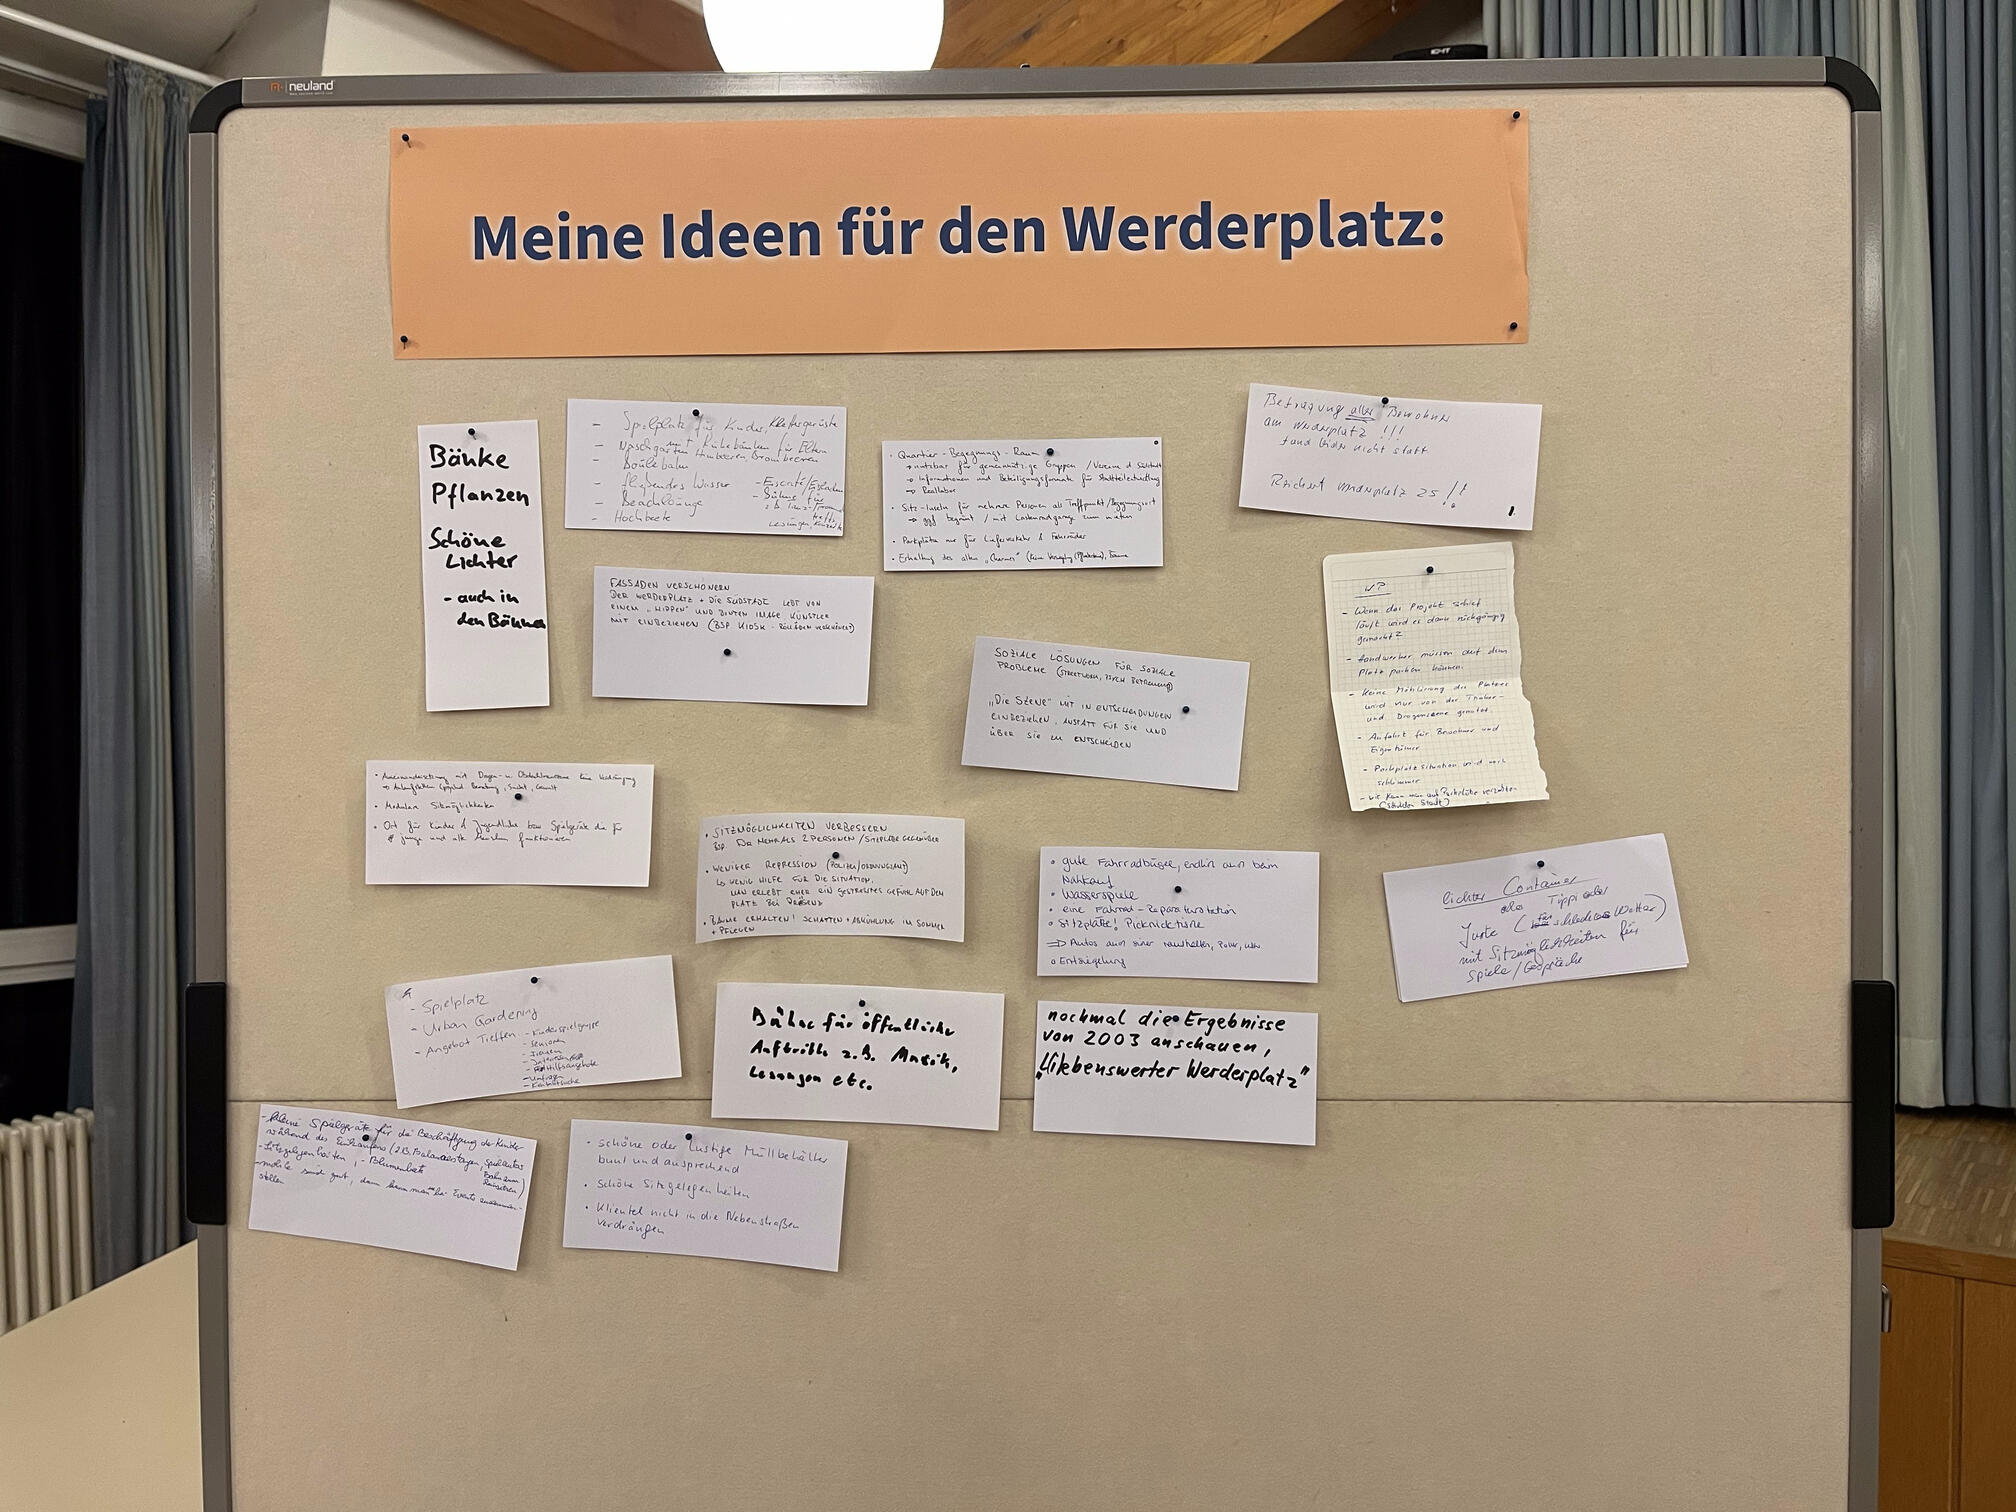 neuland
Meine Ideen für den Werderplatz:
Bänke
Pflanzen
Schöne
Lichter
- auch in
den Bäumen
- Spielplatz für Kinder, Klettergerüste
- Naschgarten mit Ruhebänken für Eltern
Himbeeren, Brombeeren
- Boulebahn
- fließendes Wasser
- Beachlounge
- Hochbeete
- Bühne für
z.B. Tanz-
Lesungen, Konzerte
• Quartier-Begegnungs-Raum
→ nutzbar für gemeinnützige Gruppen / Vereine d. Südstadt
→ Informationen und Beteiligungsformate für Stadtteilentwicklung
→ Reallabor
• Sitz-Inseln für mehrere Personen als Treffpunkt/Begegnungsort
→ ggf. begrünt / mit Lastenradgarage zum mieten
• Parkplätze nur für Lieferverkehr & Fahrräder
• Erhaltung des alten "Charmes" (keine
Befragung aller Bewohner
am Werderplatz !!!
fand leider nicht statt
Reichert Werderplatz 25 !!
FASSADEN VERSCHÖNERN
DER WERDERPLATZ + DIE SÜDSTADT LEBT VON
EINEM „HIPPEN" UND BUNTEN IMAGE. KÜNSTLER
MIT EINBEZIEHEN (BSP. KIOSK - ROLLÄDEN VERSCHÖNERT)
SOZIALE LÖSUNGEN FÜR SOZIALE
PROBLEME (STREETWORK, PSYCH BETREUUNG)
„DIE SZENE" MIT IN ENTSCHEIDUNGEN
EINBEZIEHEN, ANSTATT FÜR SIE UND
ÜBER SIE ZU ENTSCHEIDEN
- Wenn das Projekt schief
läuft wird es dann rückgängig
gemacht?
- Handwerker müssen auf dem
Platz parken können.
- Keine Möblierung des Platzes
wird nur von der Trinker-
und Drogenszene genutzt.
- Anfahrt für Bewohner und
Eigentümer
- Parkplatzsituation wird noch
schlimmer
- wie kann man auf Parkplätze verzichten
• Auseinandersetzung mit Drogen- u. Obdachlosenszene ohne Verdrängung
→ Anlaufstellen (psychol. Beratung, Sucht, Gewalt
• Modulare Sitzmöglichkeiten
• Ort für Kinder & Jugendliche bzw Spielgeräte die für
junge und alte Menschen funktionieren
• SITZMÖGLICHKEITEN VERBESSERN
BSP. FÜR MEHR ALS 2 PERSONEN / SITZPLÄTZE GEGENÜBER
• WENIGER REPRESSION (POLIZEI/ORDNUNGSAMT)
↳ WENIG HILFE FÜR DIE SITUATION.
MAN ERLEBT EHER EIN GESTRESSTES GEFÜHL AUF DEM
PLATZ BEI
• BÄUME ERHALTEN! SCHATTEN + ABKÜHLUNG IM SOMMER
+ PFLEGEN
• gute Fahrradbügel, endlich auch beim
Nahkauf
• Wasserspiele
• eine Fahrrad-Reparaturstation
• Sitzplätze! Picknicktische
⇒ Autos aus einer raushalten, Poller, usw.
• Entsiegelung
lichter Container
oder Tippi oder
Jurte (für schlechtes Wetter)
mit Sitzmöglichkeiten für
Spiele / Gespräche
- Spielplatz
- Urban Gardening
- Angebot Treffen - Kinderspielgruppe
- Senioren
- Frauen
- Hilfsangebote
- Umfragen
Bühne für öffentliche
Auftritte z.B. Musik,
Lesungen etc.
nochmal die Ergebnisse
von 2003 anschauen,
"Liebenswerter Werderplatz"
- kleine Spielgeräte für die Beschäftigung der Kinder
während des Einkaufens (z.B. Balancestangen,
- Sitzgelegenheiten, - Blumenbeete
- mobile sind gut, dann kann man bei Events
stellen
• schöne oder lustige Müllbehälter
bunt und ansprechend
• schöne Sitzgelegenheiten
• Klientel nicht in die Nebenstraßen
verdrängen